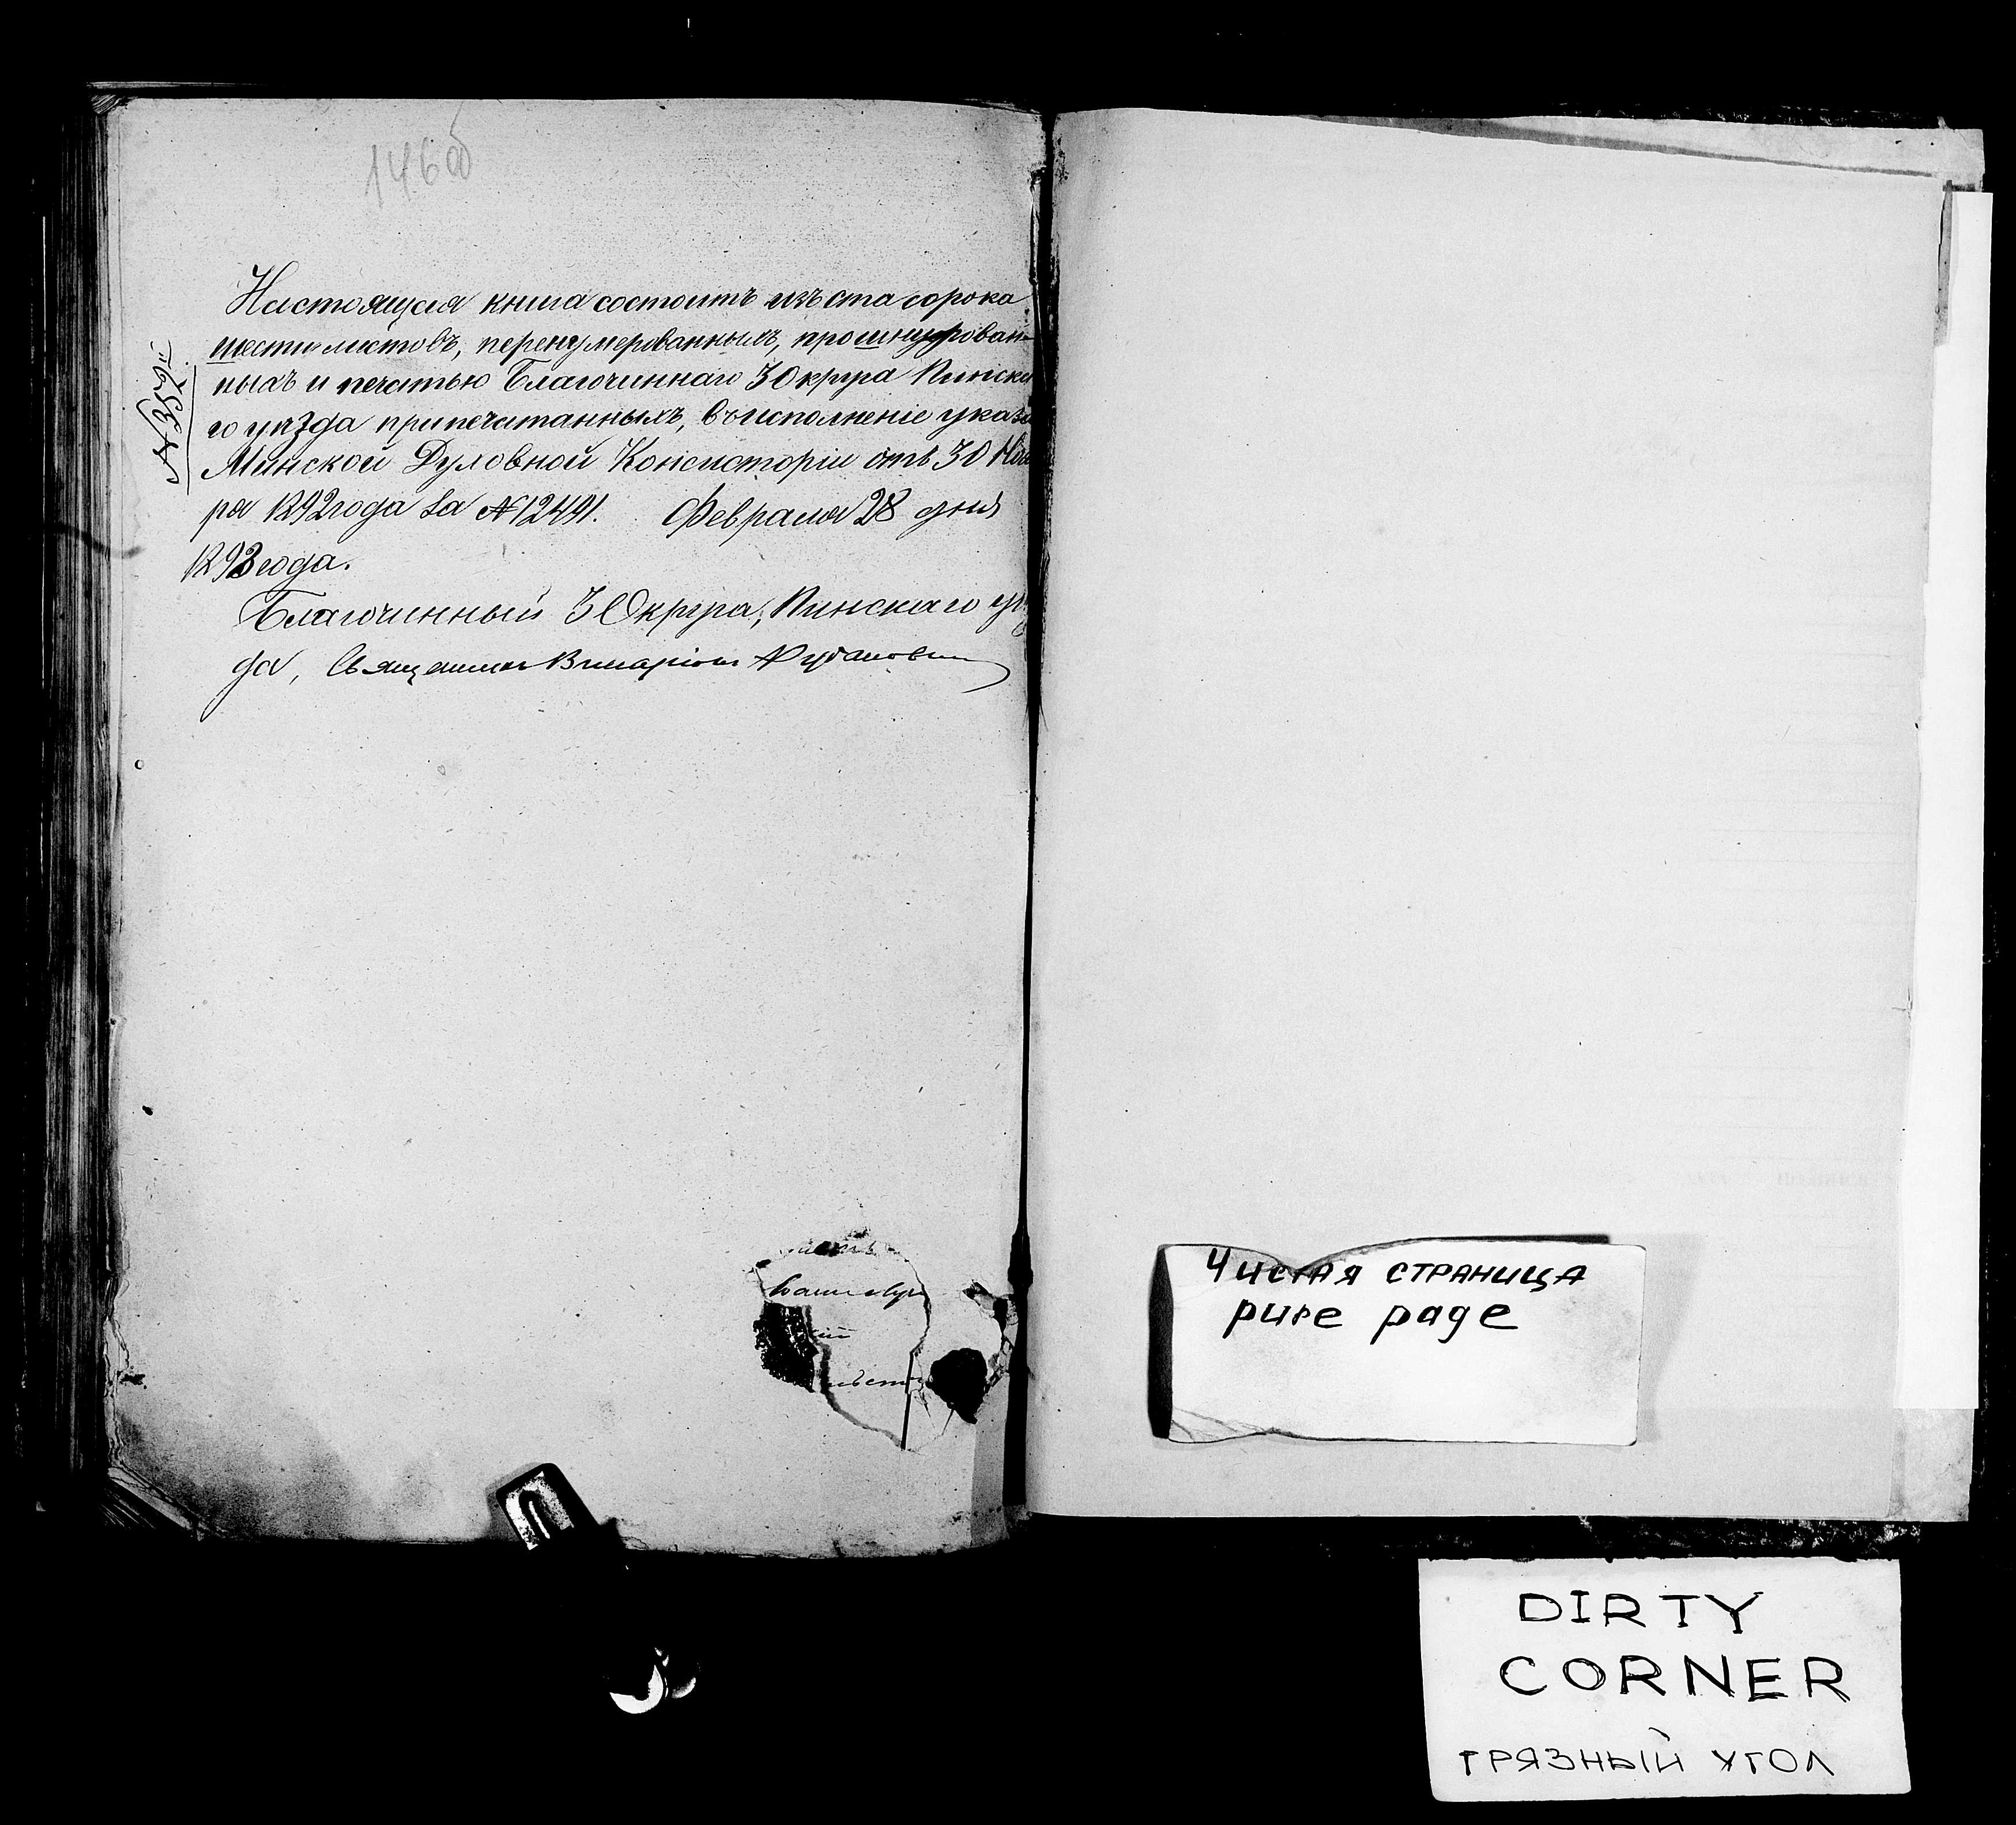 146 об
Настоящая книга состоитъ изъ ста сорока
шести листовъ, перенумерованныхъ, прошнурован-
ныхъ и печатью Благочиннаго 3 Округа Пинска
го уѣзда припечатанныхъ, въ исполненіе указа
Минской Духовной Консисторіи отъ 30 Ноя
ря 1892 года за № 12491. Февраля 28 дня
1893 года.
Благочинный 3 Округа, Пинскаго уѣ
да, Священникъ
Чистая страница
pure page
DIRTY
CORNER
грязный угол